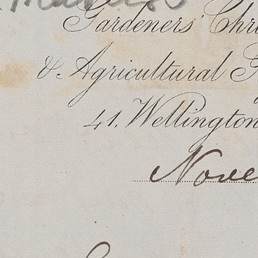 Gardeners' Chr
& Agricultural G
41. Wellington
Nove